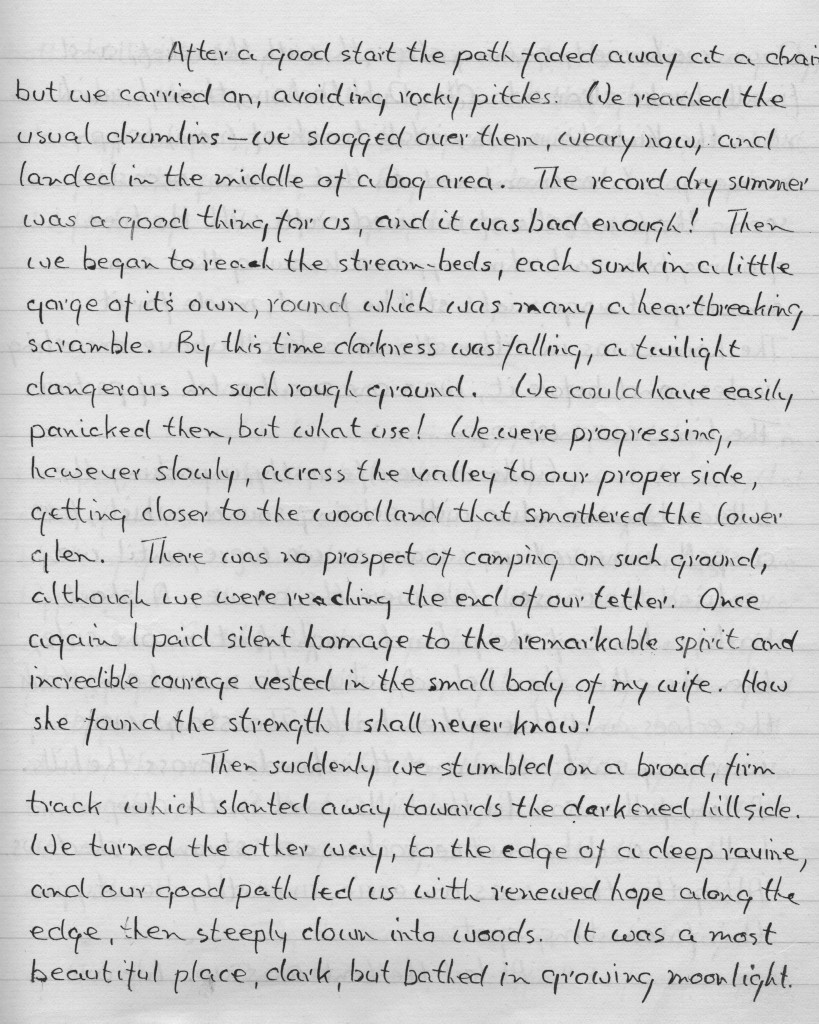 After a good start the path faded away at a
but we carried on, avoiding rocky pitches. We reached the
usual drumlins – we slogged over them, weary now, and
landed in the middle of a bog area. The record dry summer
was a good thing, for us, and it was bad enough! Then
we began to reach the stream-beds, each sunk in a little
gorge of it's own, round which was many a heartbreaking
scramble. By this time darkness was falling, a twilight
dangerous on such rough ground. We could have easily
panicked then, but what use! We were progressing,
however slowly, across the valley to our proper side,
getting closer to the woodland that smothered the lower
glen. There was no prospect of camping on such ground,
although we were reaching the end of our tether. Once
again I paid silent homage to the remarkable spirit and
incredible courage vested in the small body of my wife. How
she found the strength I shall never know!
Then suddenly we stumbled on a broad, firm
track which slanted away towards the darkened hillside.
We turned the other way, to the edge of a deep ravine,
and our good path led us with renewed hope along the
edge, then steeply down into woods. It was a most
beautiful place, dark, but bathed in growing moonlight.